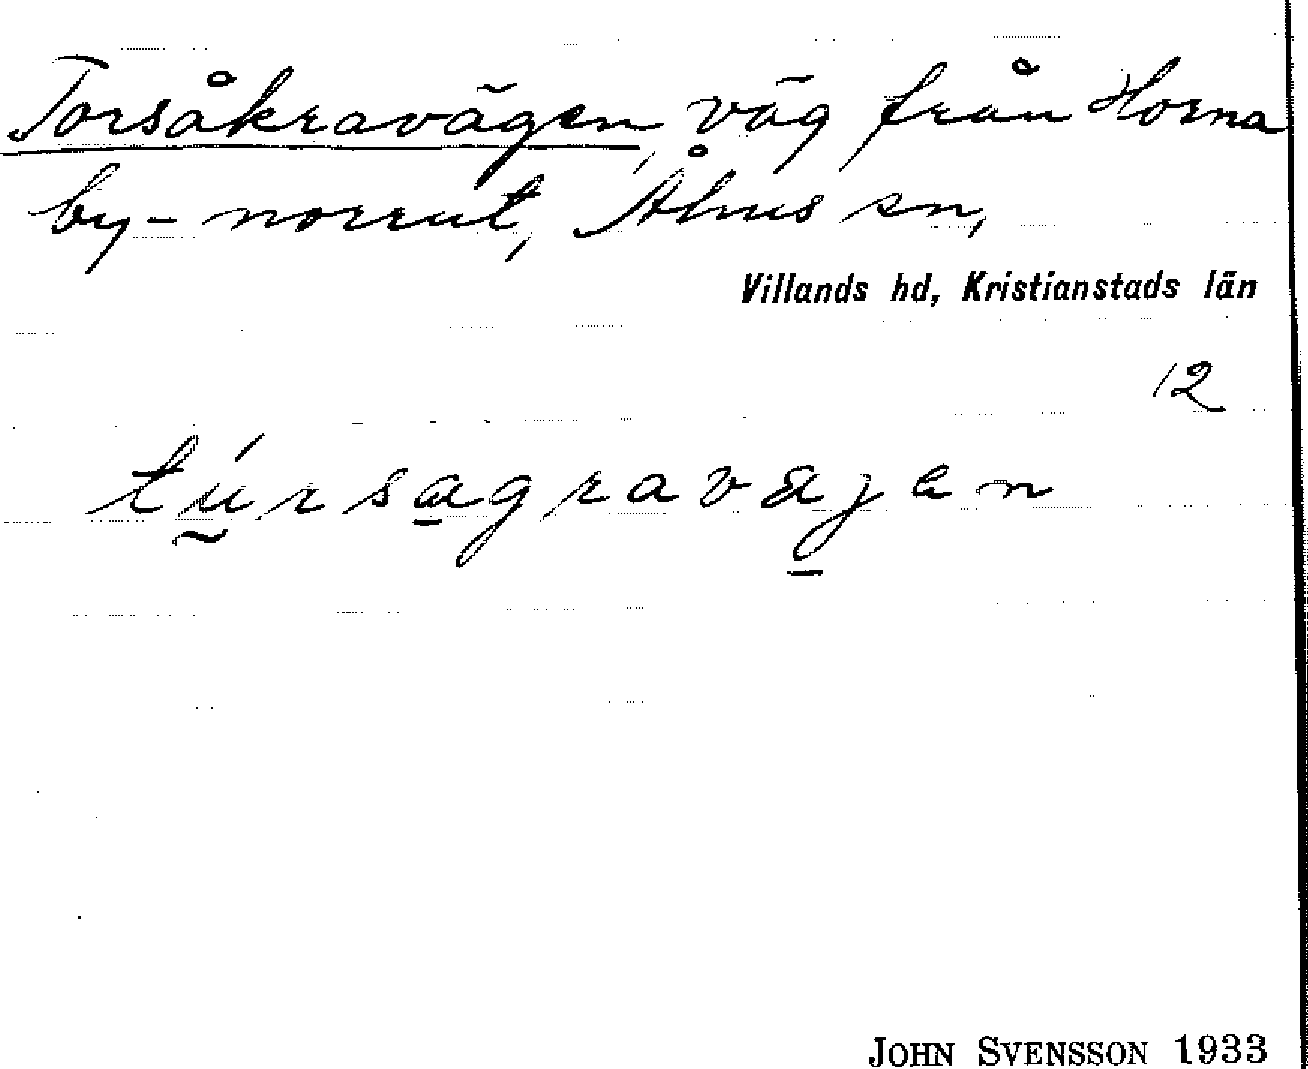 Torsåkravägen, väg från Horna
by - norrut, Åhus sn,
Villands hd, Kristianstads län
12
tṵ́rsa̱grava̱jen
JOHN SVENSSON 1933